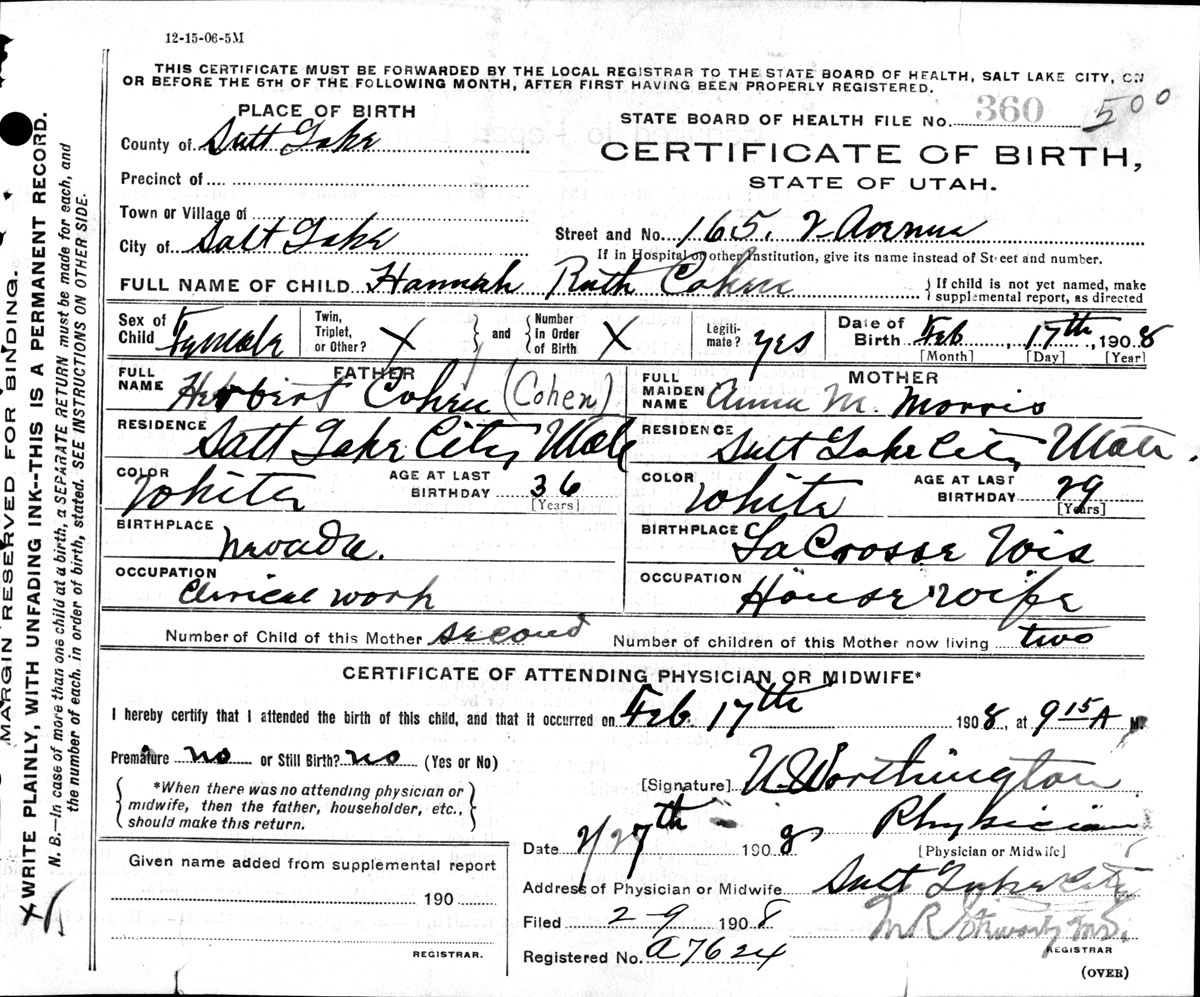 12-15-06-5M
THIS CERTIFICATE MUST BE FORWARDED BY THE LOCAL REGISTRAR TO THE STATE BOARD OF HEALTH, SALT LAKE CITY, ON
OR BEFORE THE 5TH OF THE FOLLOWING MONTH, AFTER FIRST HAVING BEEN PROPERLY REGISTERED.
PLACE OF BIRTH
STATE BOARD OF HEALTH FILE No. 360 500
County of Salt Lake
CERTIFICATE OF BIRTH,
STATE OF UTAH.
Precinct of
Town or Village of
City of Salt Lake
Street and No. 165. 2 Avenue
If in Hospital or other Institution, give its name instead of Street and number.
FULL NAME OF CHILD Hannah Ruth Cohen
If child is not yet named, make
supplemental report, as directed
Sex of Child Female Twin, Triplet, or Other? X and Number in Order of Birth X Legitimate? yes Date of Birth Feb, 17th, 1908
[Month] [Day] [Year]
FATHER
FULL NAME Herbert Cohen (Cohen)
RESIDENCE Salt Lake City Utah
COLOR White AGE AT LAST BIRTHDAY 36
[Years]
BIRTHPLACE Nevada.
OCCUPATION Clerical work
MOTHER
FULL MAIDEN NAME Anna M. Morris
RESIDENCE Salt Lake City Utah.
COLOR White AGE AT LAST BIRTHDAY 29
[Years]
BIRTHPLACE LaCrosse Wis
OCCUPATION House wife
Number of Child of this Mother second Number of children of this Mother now living two
CERTIFICATE OF ATTENDING PHYSICIAN OR MIDWIFE*
I hereby certify that I attended the birth of this child, and that it occurred on Feb. 17th 1908, at 9 15 A M.
Premature no or Still Birth? no (Yes or No)
*When there was no attending physician or
midwife, then the father, householder, etc.,
should make this return.
[Signature] U. Worthington
Physician
[Physician or Midwife]
Date 2/27th 1908
Address of Physician or Midwife Salt Lake City
Given name added from supplemental report
190
REGISTRAR.
Filed 2-9 1908
REGISTRAR
Registered No. A7624
(OVER)
MARGIN RESERVED FOR BINDING.
WRITE PLAINLY, WITH UNFADING INK--THIS IS A PERMANENT RECORD.
N. B.—In case of more than one child at a birth, a SEPARATE RETURN must be made for each, and
the number of each, in order of birth, stated. SEE INSTRUCTIONS ON OTHER SIDE.